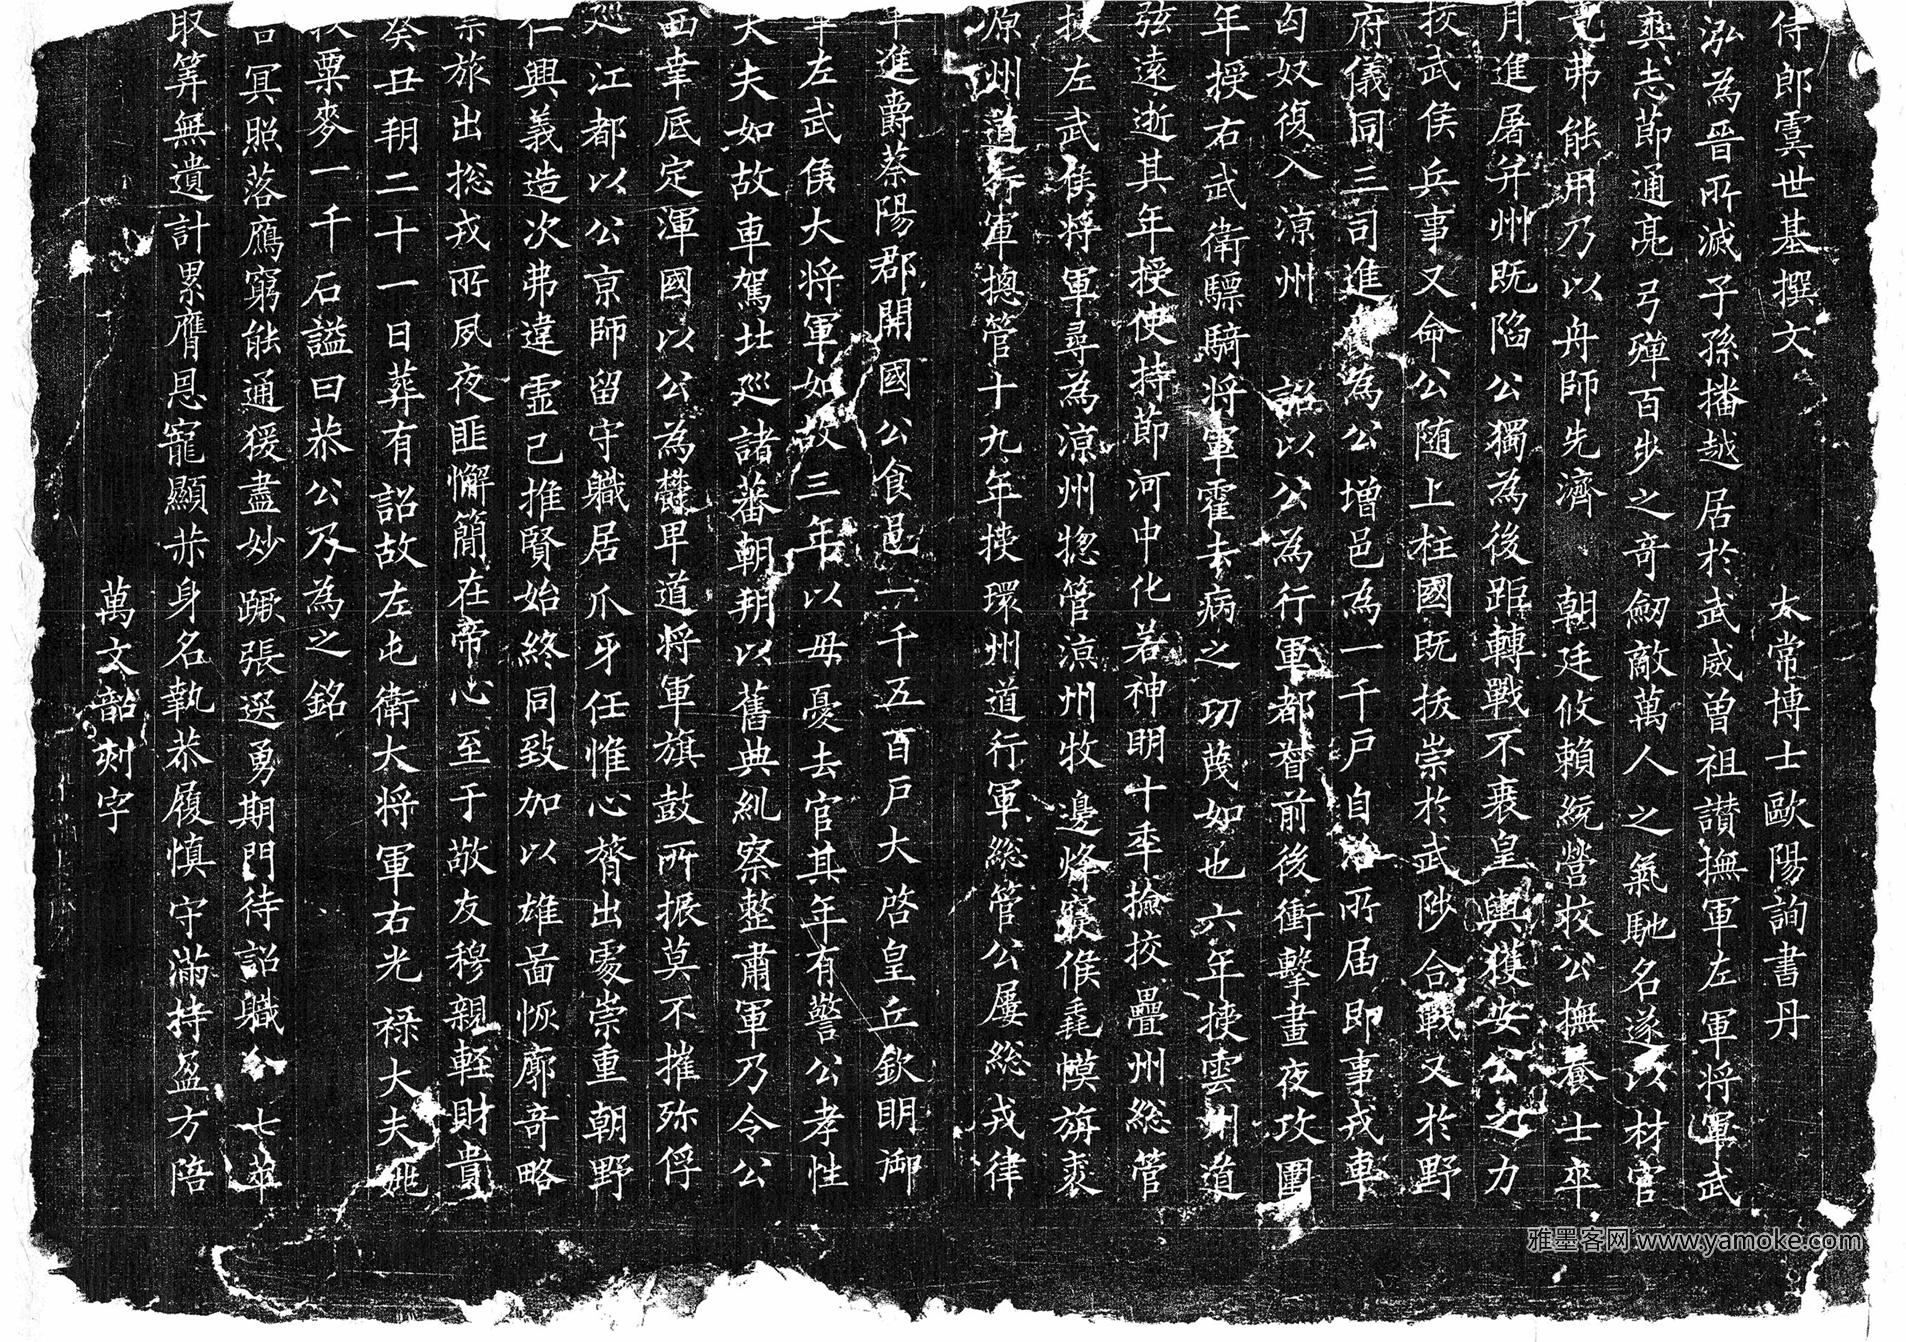 侍郎虞世基撰文 太常博士歐陽詢書丹
泓為晉所滅子孫播越居於武威曽祖讃撫軍左軍将軍武
爽志節通亮弓殫百步之奇劒敵萬人之氣馳名遂以材官
弗能用乃以舟師先濟 朝廷攸賴統營校公撫養士卒
月進屠并州既陷公獨為後距轉戰不衰皇輿獲安公之力
授武侯兵事又命公随上柱國既拔崇於武陟合戰又於野
府儀同三司進 為公增邑為一千戸自治所届即事戎車
匈奴復入涼州 詔以公為行軍都督前後衝擊晝夜攻圍
年授右武衛驃騎将軍霍去病之功蔑如也六年授雲州道
弦遠逝其年授使持節河中化若神明十年撿挍疊州総管
授左武侯将軍尋為涼州惣管涼州牧邊烽寢候毳幙旃裘
原州道行軍摠管十九年授環州道行軍総管公屢総戎律
年進爵蔡陽郡開國公食邑一千五百戸大啓皇丘欽明御
年左武侯大将軍如故三年以母憂去官其年有警公孝性
大夫如故車駕北巡諸蕃朝朔以舊典糺察整肅軍乃令公
西幸底定渾國以公為 卑道将軍旗鼓所振莫不摧殄俘
巡江都以公京師留守職居爪牙任惟心膂出處崇重朝野
仁興義造次弗違虚己推賢始終同致加以雄啚恢廓奇略
禁旅出揔戎所夙夜匪懈簡在帝心至于敬友穆親軽財貴
癸丑朔二十一日葬有詔故左屯衛大将軍右光禄大夫姚
粟麥一千石謚曰恭公乃為之銘
冥照落鴈窮能通猨盡妙蹶張選勇期門待詔職 七萃
取筭無遺計累膺恩寵顯赤身名執恭履慎守滿持盈方陪
萬文韶刻字
雅墨客网 www.yamoke.com